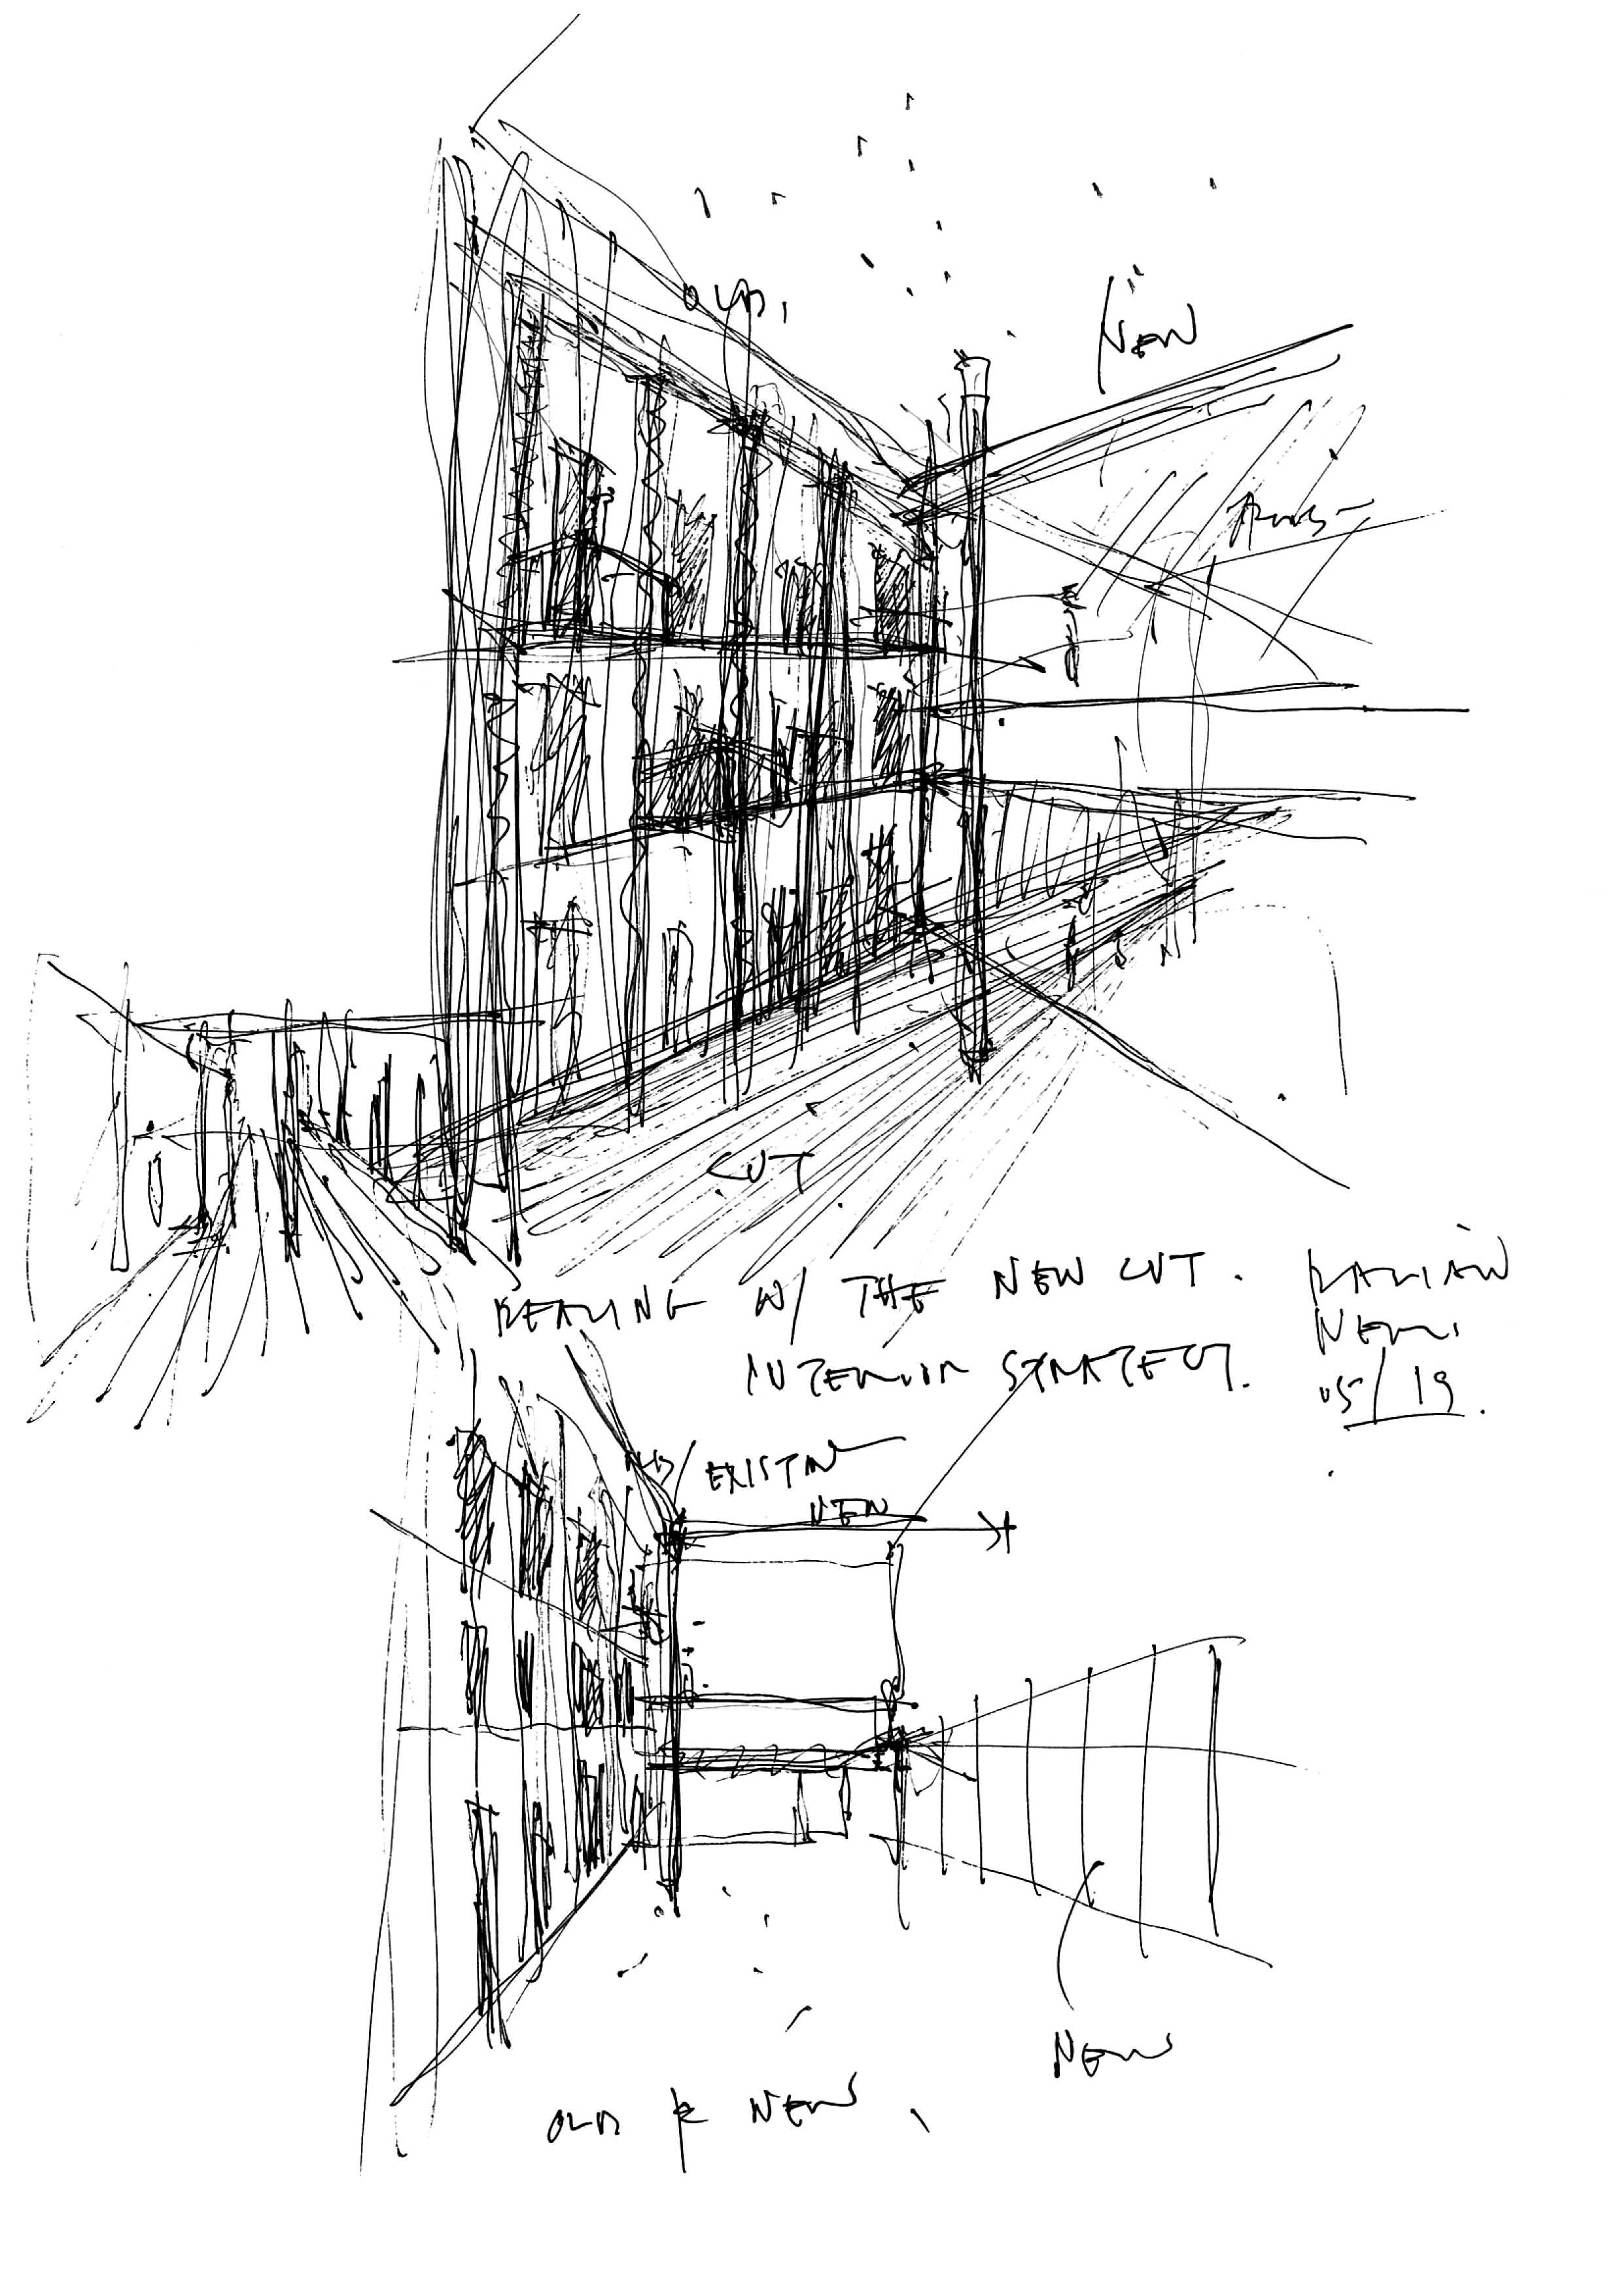 OLD,
NEW
CUT
DEALING W/ THE NEW CUT.
INTERIOR STRATEGY.
05/19.
OLD/EXISTIN
NEW
NEW
OLD & NEW,